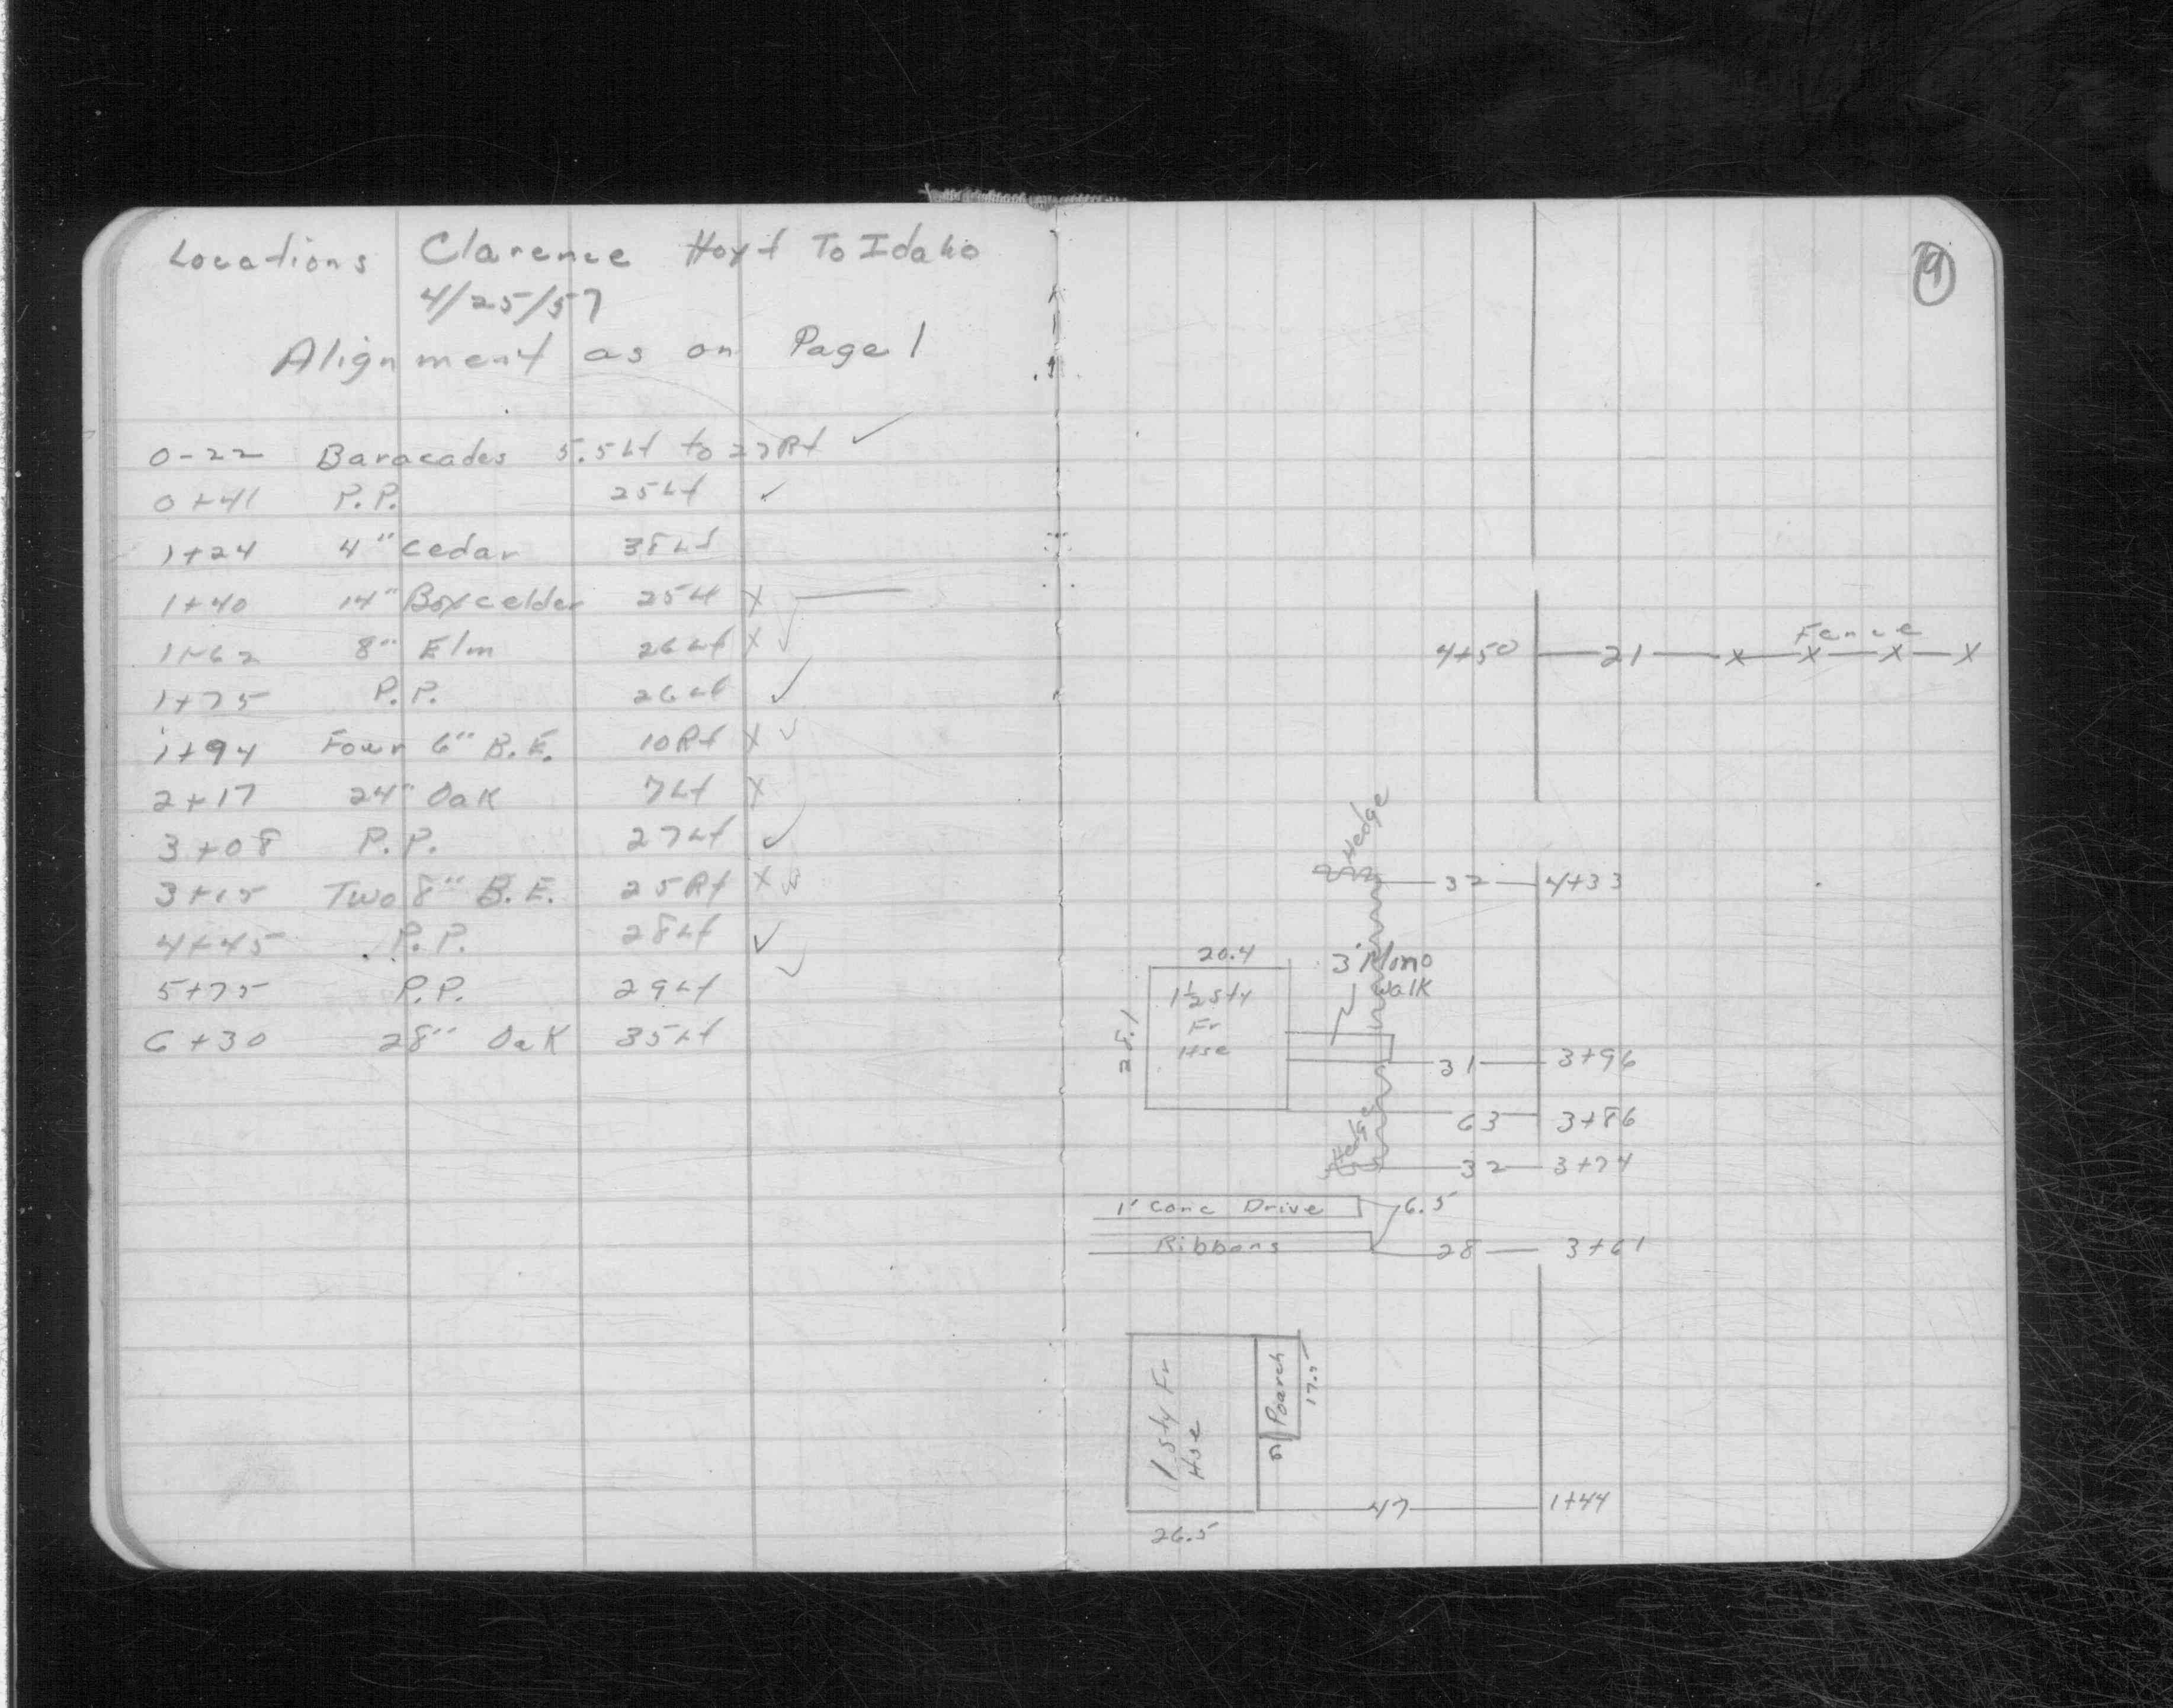 Locations Clarence Hoyt To Idaho
4/25/57
Alignment as on Page 1
0-22 Baracades 5.5Lt to 27Rt ✓
0+41 P.P. 25Lt ✓
1+24 4" Cedar 38Lt
1+40 14" Boxcelder 25Lt X
1+62 8" Elm 26Lt X ✓
1+75 P.P. 26Lt ✓
1+94 Four 6" B.E. 10Rt X ✓
2+17 24" Oak 7Lt X
3+08 P.P. 27Lt ✓
3+15 Two 8" B.E. 25Rt X
4+45 P.P. 28Lt ✓
5+75 P.P. 29Lt ✓
6+30 28" Oak 35Lt
9
Fence
4+50 21 X X X X
Hedge
32 4+33
20.4
3' Mono
Walk
1½ Sty
Fr
Hse
28.1
31 3+96
63 3+86
Hedge
32 3+74
1' Conc Drive 6.5
Ribbons 28 3+61
1 Sty Fr
Hse
Poarch
17.5
5
47 1+44
26.5